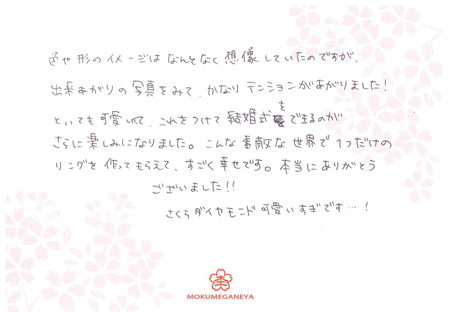 色や形のイメージはなんとなく想像していたのですが、
出来あがりの写真をみて、かなりテンションがあがりました!
とっても可愛いくて、これをつけて結婚式をできるのが
さらに楽しみになりました。こんな素敵な世界で1つだけの
リングを作ってもらえて、すごく幸せです。本当にありがとう
ございました!!
さくらダイヤモンド可愛いすぎです…!
MOKUMEGANEYA